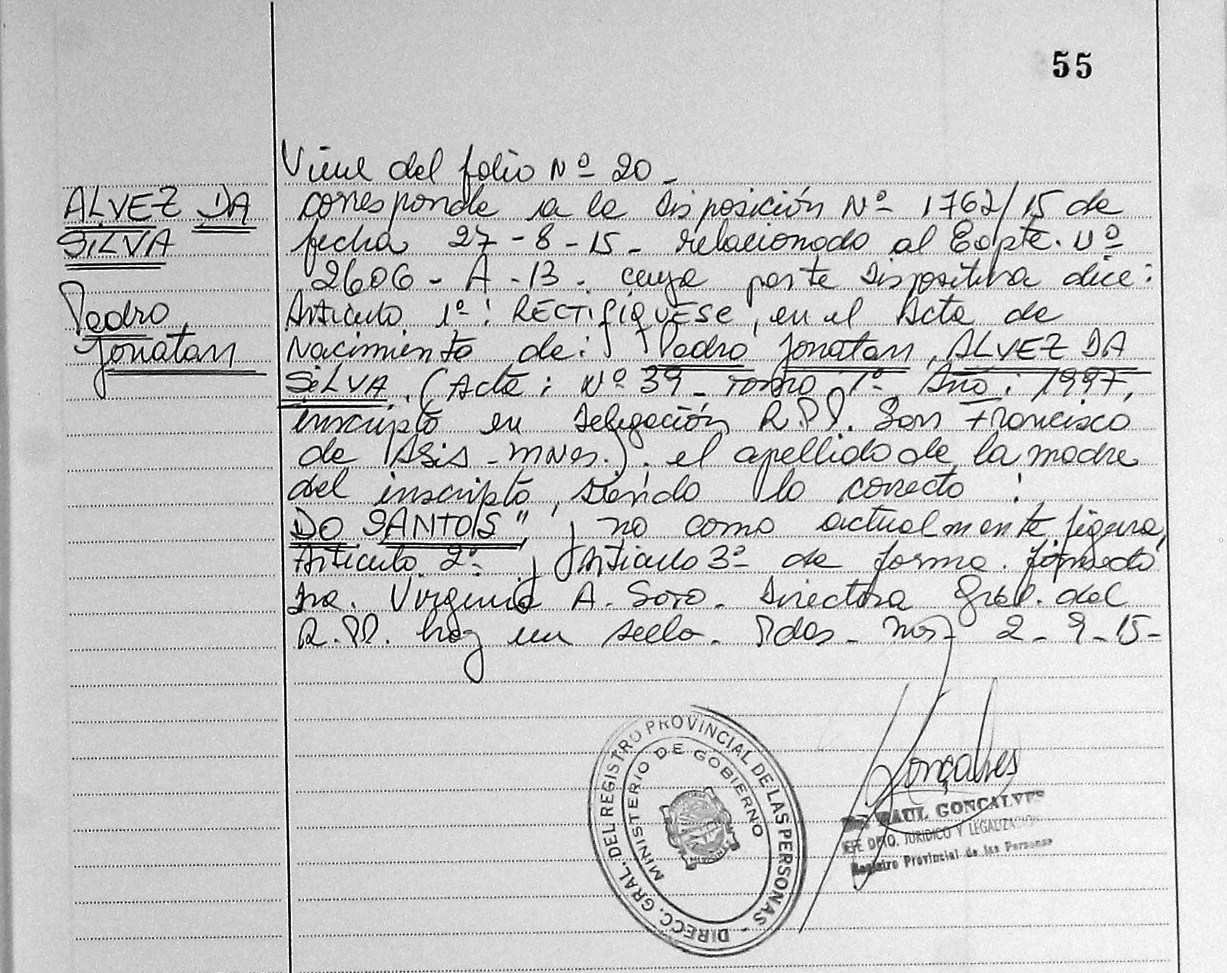 55
Viene del folio Nº 20 -
ALVEZ DA
SILVA
Pedro
Jonatan
corresponde a la Disposición Nº 1762/15 de
fecha 27-8-15- relacionado al Expte. Nº
2606 - A - 13 - cuya parte Dispositiva dice:
Artículo 1º: RECTIFÍQUESE, en el Acta de
Nacimiento de: Pedro Jonatan, ALVEZ DA
SILVA. (Acta: Nº 39 - Tomo 1º - Año: 1997,
inscripto en Delegación R.P.P. San Francisco
de Asis - Mnes.). el apellido de la madre
del inscripto, siendo lo correcto:
DO SANTOS" y no como actualmente figura,
Artículo 2º - y Artículo 3º de forma. firmado
Dra. Virginia A. Soto. Directora Gral. del
R.P.P. hay un sello. Pdas - Mnes - 2-9-15-
DIRECC. GRAL. DEL REGISTRO PROVINCIAL DE LAS PERSONAS -
MINISTERIO DE GOBIERNO
Gonçalves
RAUL GONCALVES
JEFE DPTO. JURIDICO Y LEGALIZACION
Registro Provincial de las Personas